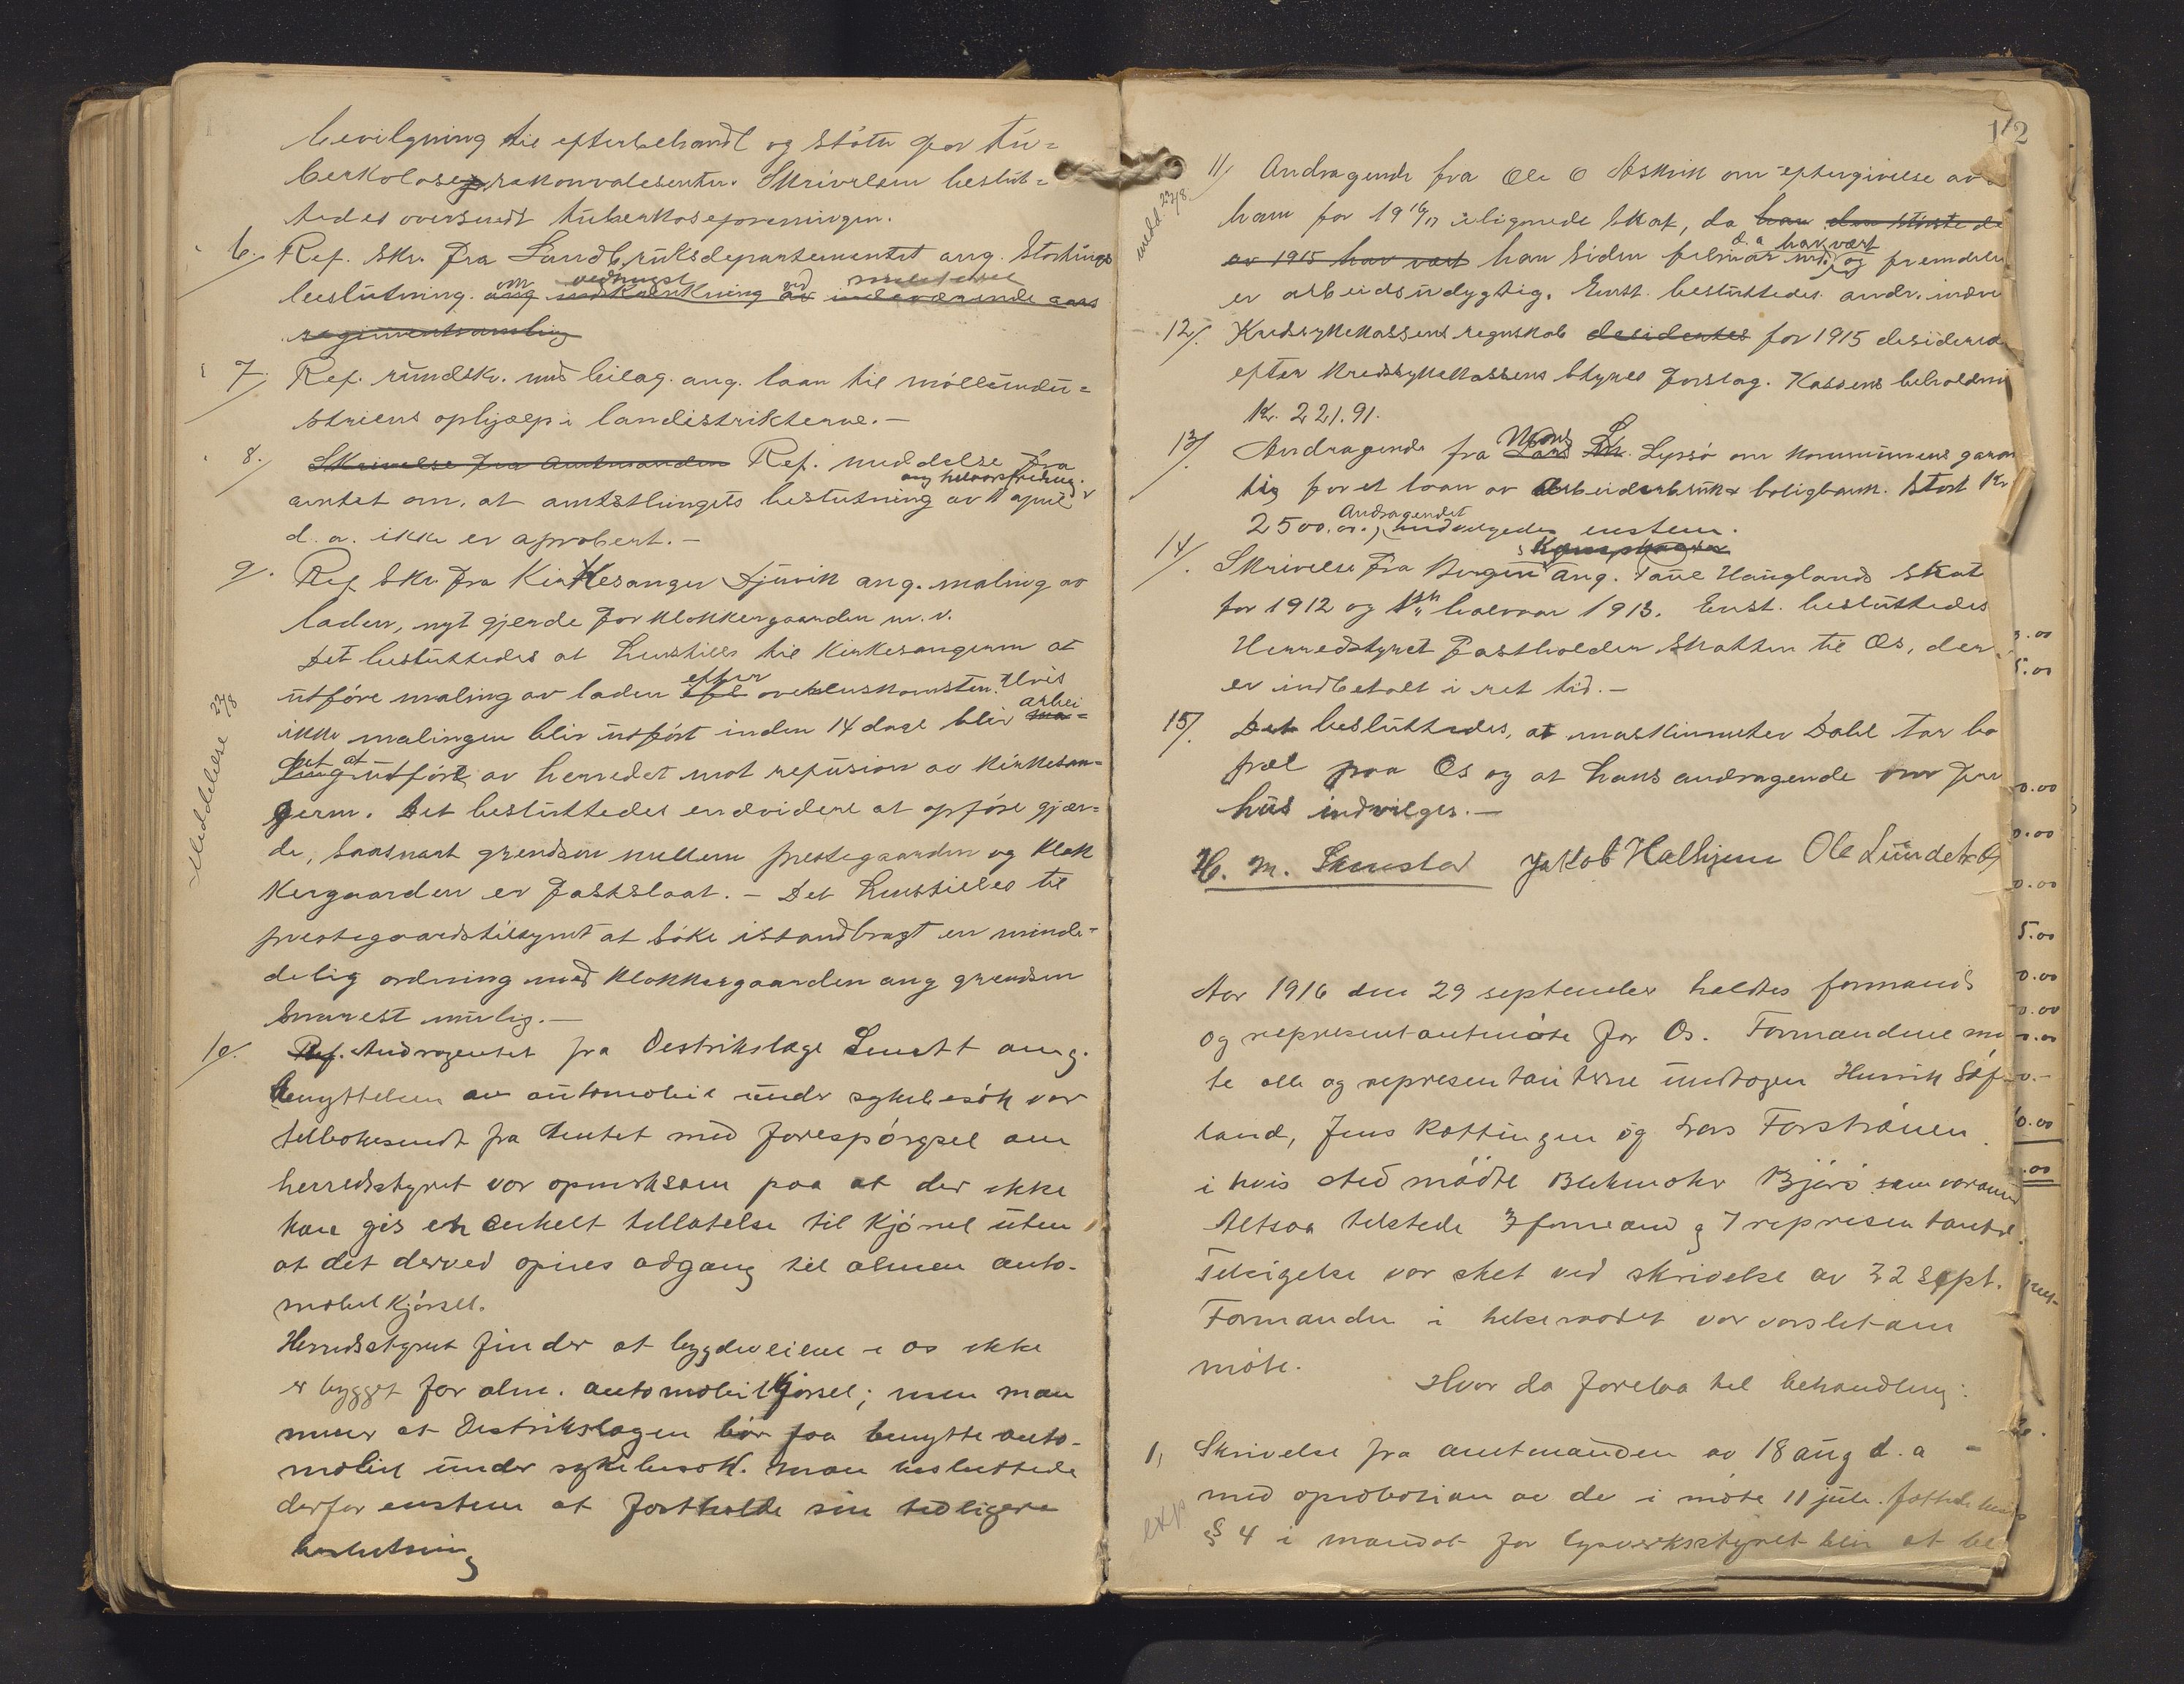 bevilgning til efterbehandl og støtte for tu=
berkoloserekonvalesenter. Skrivelsen beslut=
tedes oversendt tuberkoseforeningen.
6. Ref. Skr. fra Landbruksdepartementet ang. Stortings
beslutning. ang om indskrænkning av indeværende aars
regimentsamling
7. Ref. rundskr. med bilag. ang. laan til mølleindu=
striens ophjælp i landistrikterne.-
8. Skrivelse fra Amtmanden Ref. meddelse fra
ang helaarsfredning.
amtet om, at amtstingets beslutning av 11 april
d.a. ikke er aprobert.-
9. Ref Skr fra Kirkesanger Djuvik ang. maling av
laden, nyt gjerde for klokkergaarden m.v.
Det besluttedes at henstille til Kirkesangeren at
efter
utføre maling av laden overenskomsten. Hvis
arbei
ikke malingen blir utført inden 14 dage blir
det at
utført av herredet mot refusion av kirkesan=
geren. Det besluttedes endvidere at opføre gjær=
de, saasnart grendsen mellem prestegaarden og Klok
kergaarden er fastslaat. - Det henstilles til
prestegaardstilsynet at søke istandbragt en minde=
delig ordning med Klokkergaarden ang grendsen
snarest mulig.-
Meddelelse 27/8
10. Ref. Andragendet fra Destrikslæge Smett ang.
benyttelsen av automobil under sykebesøk var
telbakesendt fra Amtet med forespørgsel om
herredstyret var opmerksom paa at der ikke
kan gis en enkelt tellatelse til kjørsel uten
at det derved opnes adgang til almen auto-
mobilkjørsel.
Herredstyret finder at bygdeveiene i os ikke
er bygget for alm. automobilkjørsel; men man
mener at Destrikslægen bør faa benytte auto-
mobil under sykebesøk. Man besluttede
derfor enstem at fastholde sin tidligere
beslutning
112
medd. 27/8
11/ Andragende fra Ole O Askvik om eftergivelse av
ham for 1916/17 ilignede skat, da han den største de
d.a. har vært
av 1915 har vært han siden februar md. og fremdeles
er arbeidsudygtig. Enst. besluttedes andr. indvi
12/. Kredssykekassens regnskab desidertes for 1915 desidered
efter Kredssykekassens styres forslag. Kassens beholdni
Kr. 221.91.
13/. Andragende fra Mons L. Lyssø om kommunens garan
tig for et laan av Arbeiderbruk & boligbank. Stort Kr
Andragendet
2500.00., indvilgedes enstem.
14/. Skrivelse fra Bergens ang. Paul Hauglands Skat
for 1912 og 1ste halvaar 1913. Enst. besluttedes
Herredstyret fastholder skatten til Os, der
er indbetalt i ret tid.-
15/. Det besluttedes, at maskinmester Dahl tar bo
pæl paa Os og at hans andragende om fri
hus indvilges.-
H. M. Jakob Hatlhjem Ole Lundetræ
Aar 1916 den 29 september holdtes formands
og representantmøte for Os. Formændene mø
te alle og representanterne undtagen Henrik Søf
land, Jens Røttingen og Lars Forstrønen
i hvis sted mødte Bjørø som varamd
Altsaa telstede 3 formænd og 7 representanter.
Telsigelse var sket ved skrivelse av 22 Sept.
Formanden i helseraadet var varslet om
møte.
Hvor da forelaa tel behandling:
1, Skrivelse fra amtmanden av 18 aug d.a -
med aprobasion av de i møte 11 juli. fattede
exp § 4 i mandat for lysverksstyret blir at be